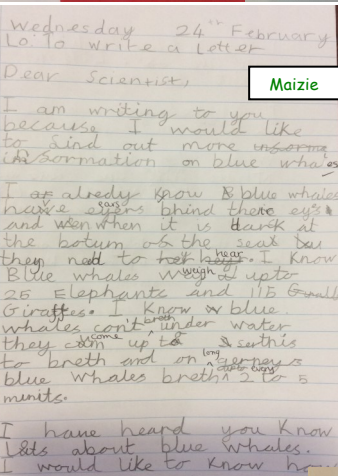 Wednesday 24th February
Lo: To write a letter
Dear Scientist,
Maizie
I am writing to you
because I would like
to find out more
information on blue whales
I alredy know blue whales
have ears bhind there eys
and when it is dark at
the botum of the sea
they need to hear. I know
Blue whales weigh upto
25 Elephants and 115
Giraffes. I know blue
whales can't breth under water
they come up to serfhis
to breth and on long jerneys
blue whales breth every 2 to 5
minits.
I have heard you know
lots about blue whales.
I would like to know